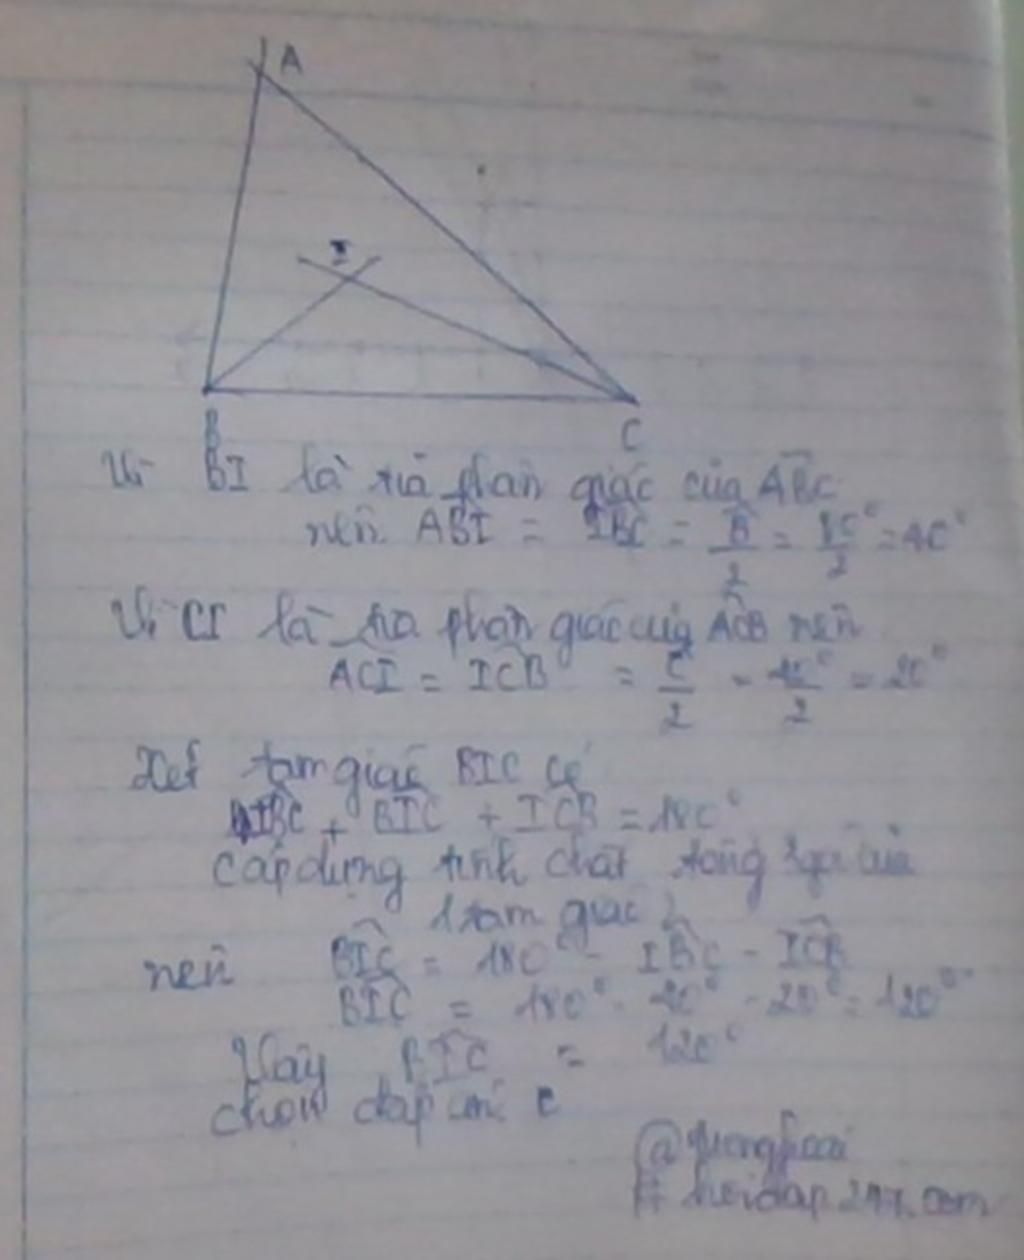 A
I
B
C
Vì BI là tia phân giác của ABC
nên ABI = IBC = B/2 = 80°/2 = 40°
Vì CI là tia phân giác của ACB nên
ACI = ICB = C/2 = 40°/2 = 20°
Xét tam giác BIC có
IBC + BIC + ICB = 180°
(áp dụng tính chất tổng của
1 tam giác)
nên BIC = 180° - IBC - ICB
BIC = 180° - - 20° = 120°
Vậy BIC = 120°
chọn đáp án C
@
# hoidap247.com